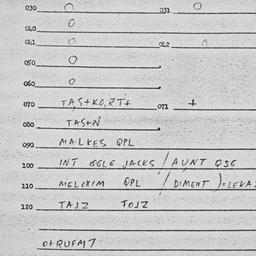 030 0 031 0
040 0
041 0 042 0
050 0
060 0
070 TAS+KO,RT+ 071 +
080 TAS+N
090 MALKES QPL
100 INT GGLE JACKS / AUNT Q3G
110 MELOXIM QPL / DIMENT )=LEKA
120 TAJZ TOJZ
0+RUFM7